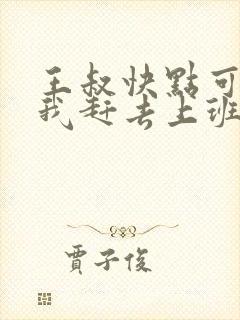 王叔快點可
我赶去上班
賈子俊